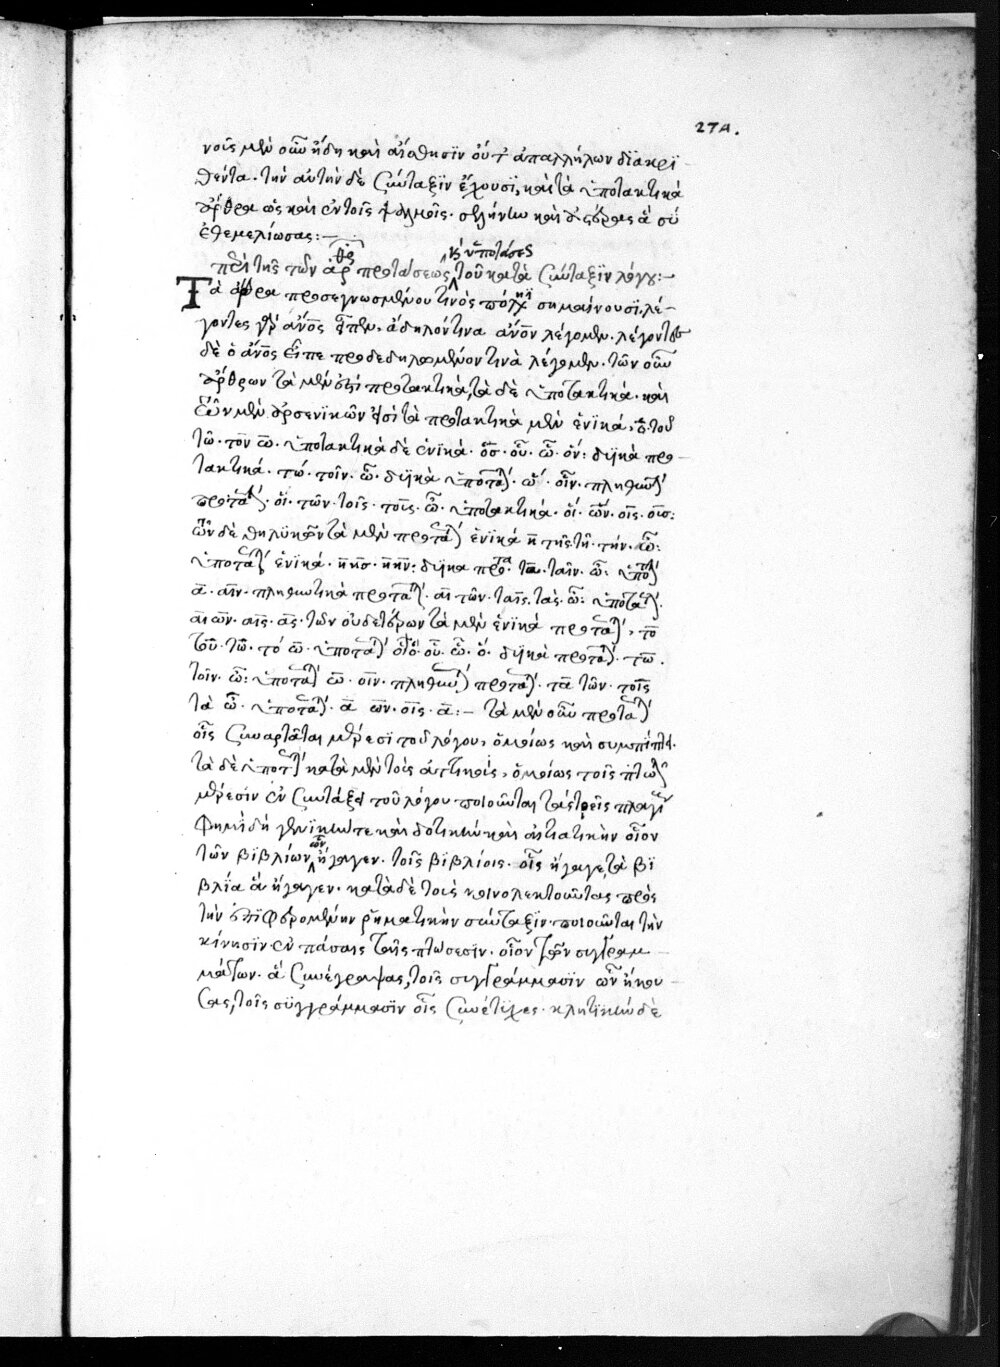 274.
νοῖς μὲν οὖν ἤδη καὶ αἴσθησϊν οὐκ ἀπαλλήλων δϊακρϊ
θέντα. τὴν αὐτὴν δὲ σύνταξϊν ἔχουσϊ, καὶ τὰ ὑποτακτικὰ
ἄρθρα ὡς καὶ ἐν τοῖς ψαλμοῖς. σελήνην καὶ ἀστέρας ἃ σὺ
ἐθεμελίωσας:—
περὶ τῆς τῶν ἄρθρ προτάσεως κ ὑποτάσεως τοῦ κατὰ σύνταξϊν λόγου:—
Τὰ ἄρθρα προεγνωσμένου τινὸς σημαίνουσϊ, λέ-
γοντες γὰρ ἄνος εἶπεν, ἄδηλόν τινα ἄνον λέγομεν. λέγοντες
δὲ ὁ ἄνος εἶπε προδεδηλωμένον τινὰ λέγομεν. τῶν οὖν
ἄρθρων τὰ μέν ἐστι προτακτικὰ, τὰ δὲ ὑποτακτικά. καὶ
τῶν μὲν ἀρσενϊκῶν εἰσὶ τὰ προτακτικὰ μὲν ἑνϊκά, ὁ. τοῦ
τῶ. τὸν ὦ. ὑποτακτικὰ δὲ ἑνικά. ὃσ. οὗ. ὧ. ὅν: δϊϊκὰ προ-
τακτικά. τώ. τοῖν. ὦ. δϊϊκὰ ὑποτα. ὥ. οἷν. πληθυ
προτα. οἱ. τῶν. τοῖς. τοὺς. ὦ. ὑποτακτικά. οἵ. ὧν. οἷς. οὓσ:
τῶν δὲ θηλϋκῶν τὰ μὲν προτα ἑνϊκά ἡ τῆς. τῆ. τήν. ὦ:
ὑποτα ἑνϊκά. ἣ ἧσ. ἧ ἥν: δϊϊκα προτα. τα. ταῖν. ὦ. ὑπο
ἃ. αἷν. πληθυντικὰ προτα. αἱ τῶν. ταῖς. τὰς. ὦ: ὑποτα.
αἳ ὧν. αἷς. ἃς. τῶν οὐδετέρων τὰ μὲν ἑνϊκὰ προτα, τὸ
τοῦ. τῶ. τό ὦ. ὑποτα ὅ. οὗ. ὧ. ὅ. δϊϊκὰ προτα. τὼ.
τοῖν. ὦ: ὑποτα ὣ. οἷν. πληθυ προτα. τὰ τῶν. τοῖς
τὰ ὦ. ὑποτα. ἃ ὧν. οἷς. ἃ:— τὰ μὲν οὖν προτα
οἷς συναρτᾶται μέρεσϊ τοῦ λόγου, ὁμοίως καὶ συμπίπτει.
τὰ δὲ ὑποτ κατὰ μὲν τοὺς ἀττικοὺς, ὁμοίως τοῖς πτω
μέρεσϊν ἐν συντάξει τοῦ λόγου ποιοῦνται τὰς τρεῖς πλαγί
φημὶ δὴ γενϊκήν τε καὶ δοτικὴν καὶ αἰτιατικὴν οἷον
τῶν βϊβλίων ὧν ἤγαγεν. τοῖς βϊβλίοις. οἷς ἤγαγε, τὰ βϊ
βλία ἃ ἤγαγεν. κατὰ δὲ τοὺς κοινολεκτοῦντας πρὸς
τὴν ἐπιφερομένην ῥηματικὴν σύνταξϊν ποιοῦνται τὴν
κίνησϊν ἐν πάσαις ταῖς πτώσεσϊν. οἷον τῶν συγγραμ-
μάτων. ἃ συνέγραψας, τοῖς συγγράμμασϊν ὧν ἤκου-
σας, τοῖς σϋγγράμμασϊν οἷς συνέτϋχες. κλητϊκὴν δὲ